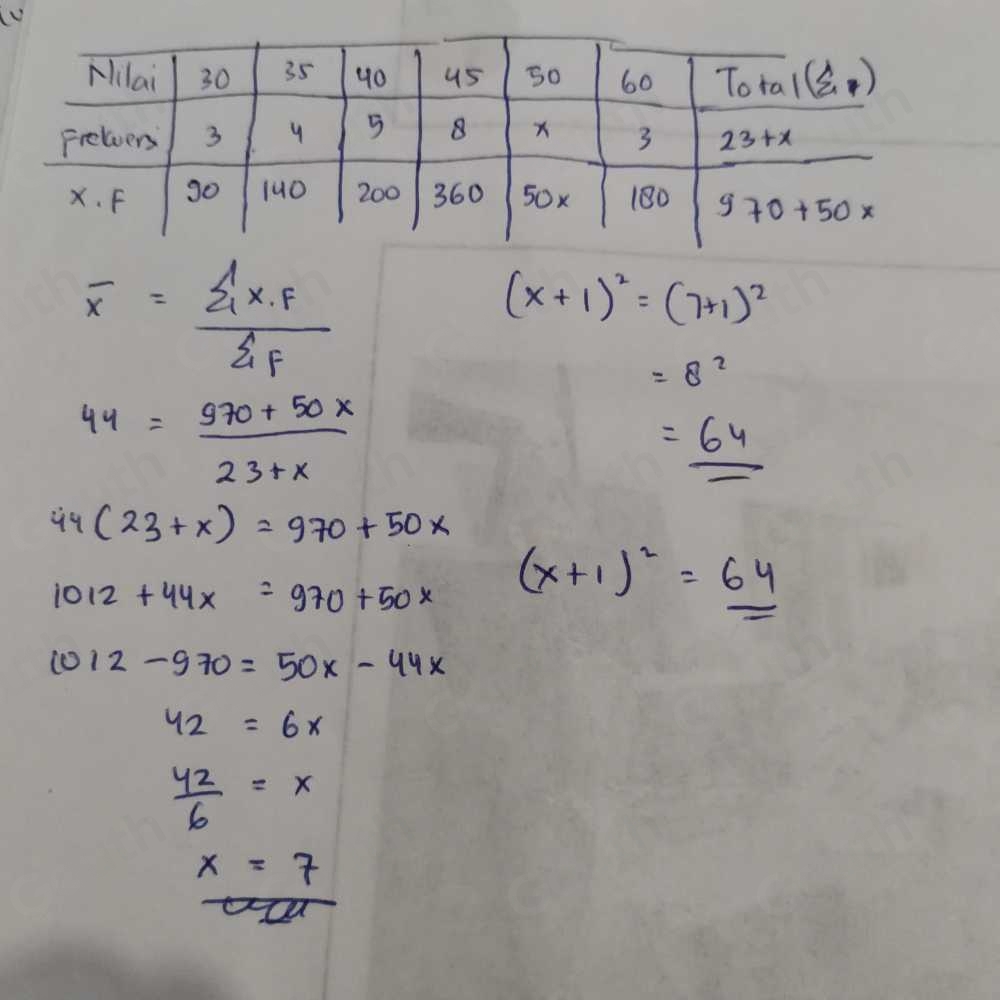 Nilai 30 35 40 45 50 60 Total (Σ)
Frekuensi 3 4 5 8 x 3 23+x
x.F 90 140 200 360 50x 180 970+50x
x̄ = Σx.F / ΣF
44 = 970+50x / 23+x
44(23+x) = 970+50x
1012+44x = 970+50x
1012-970 = 50x-44x
42 = 6x
42/6 = x
x = 7
(x+1)² = (7+1)²
= 8²
= 64
(x+1)² = 64